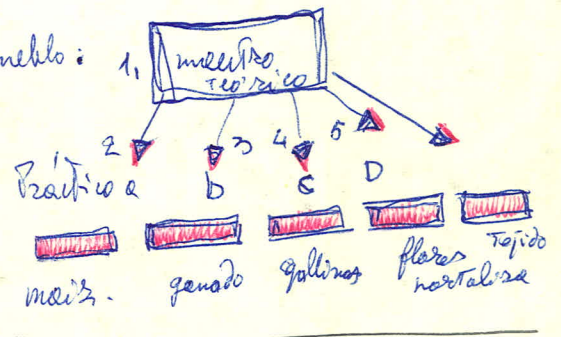 pueblo: 1, maestro
teórico
2 3 4 5
Práctico a b c D
maíz. ganado gallinas flores tejido
hortaliza